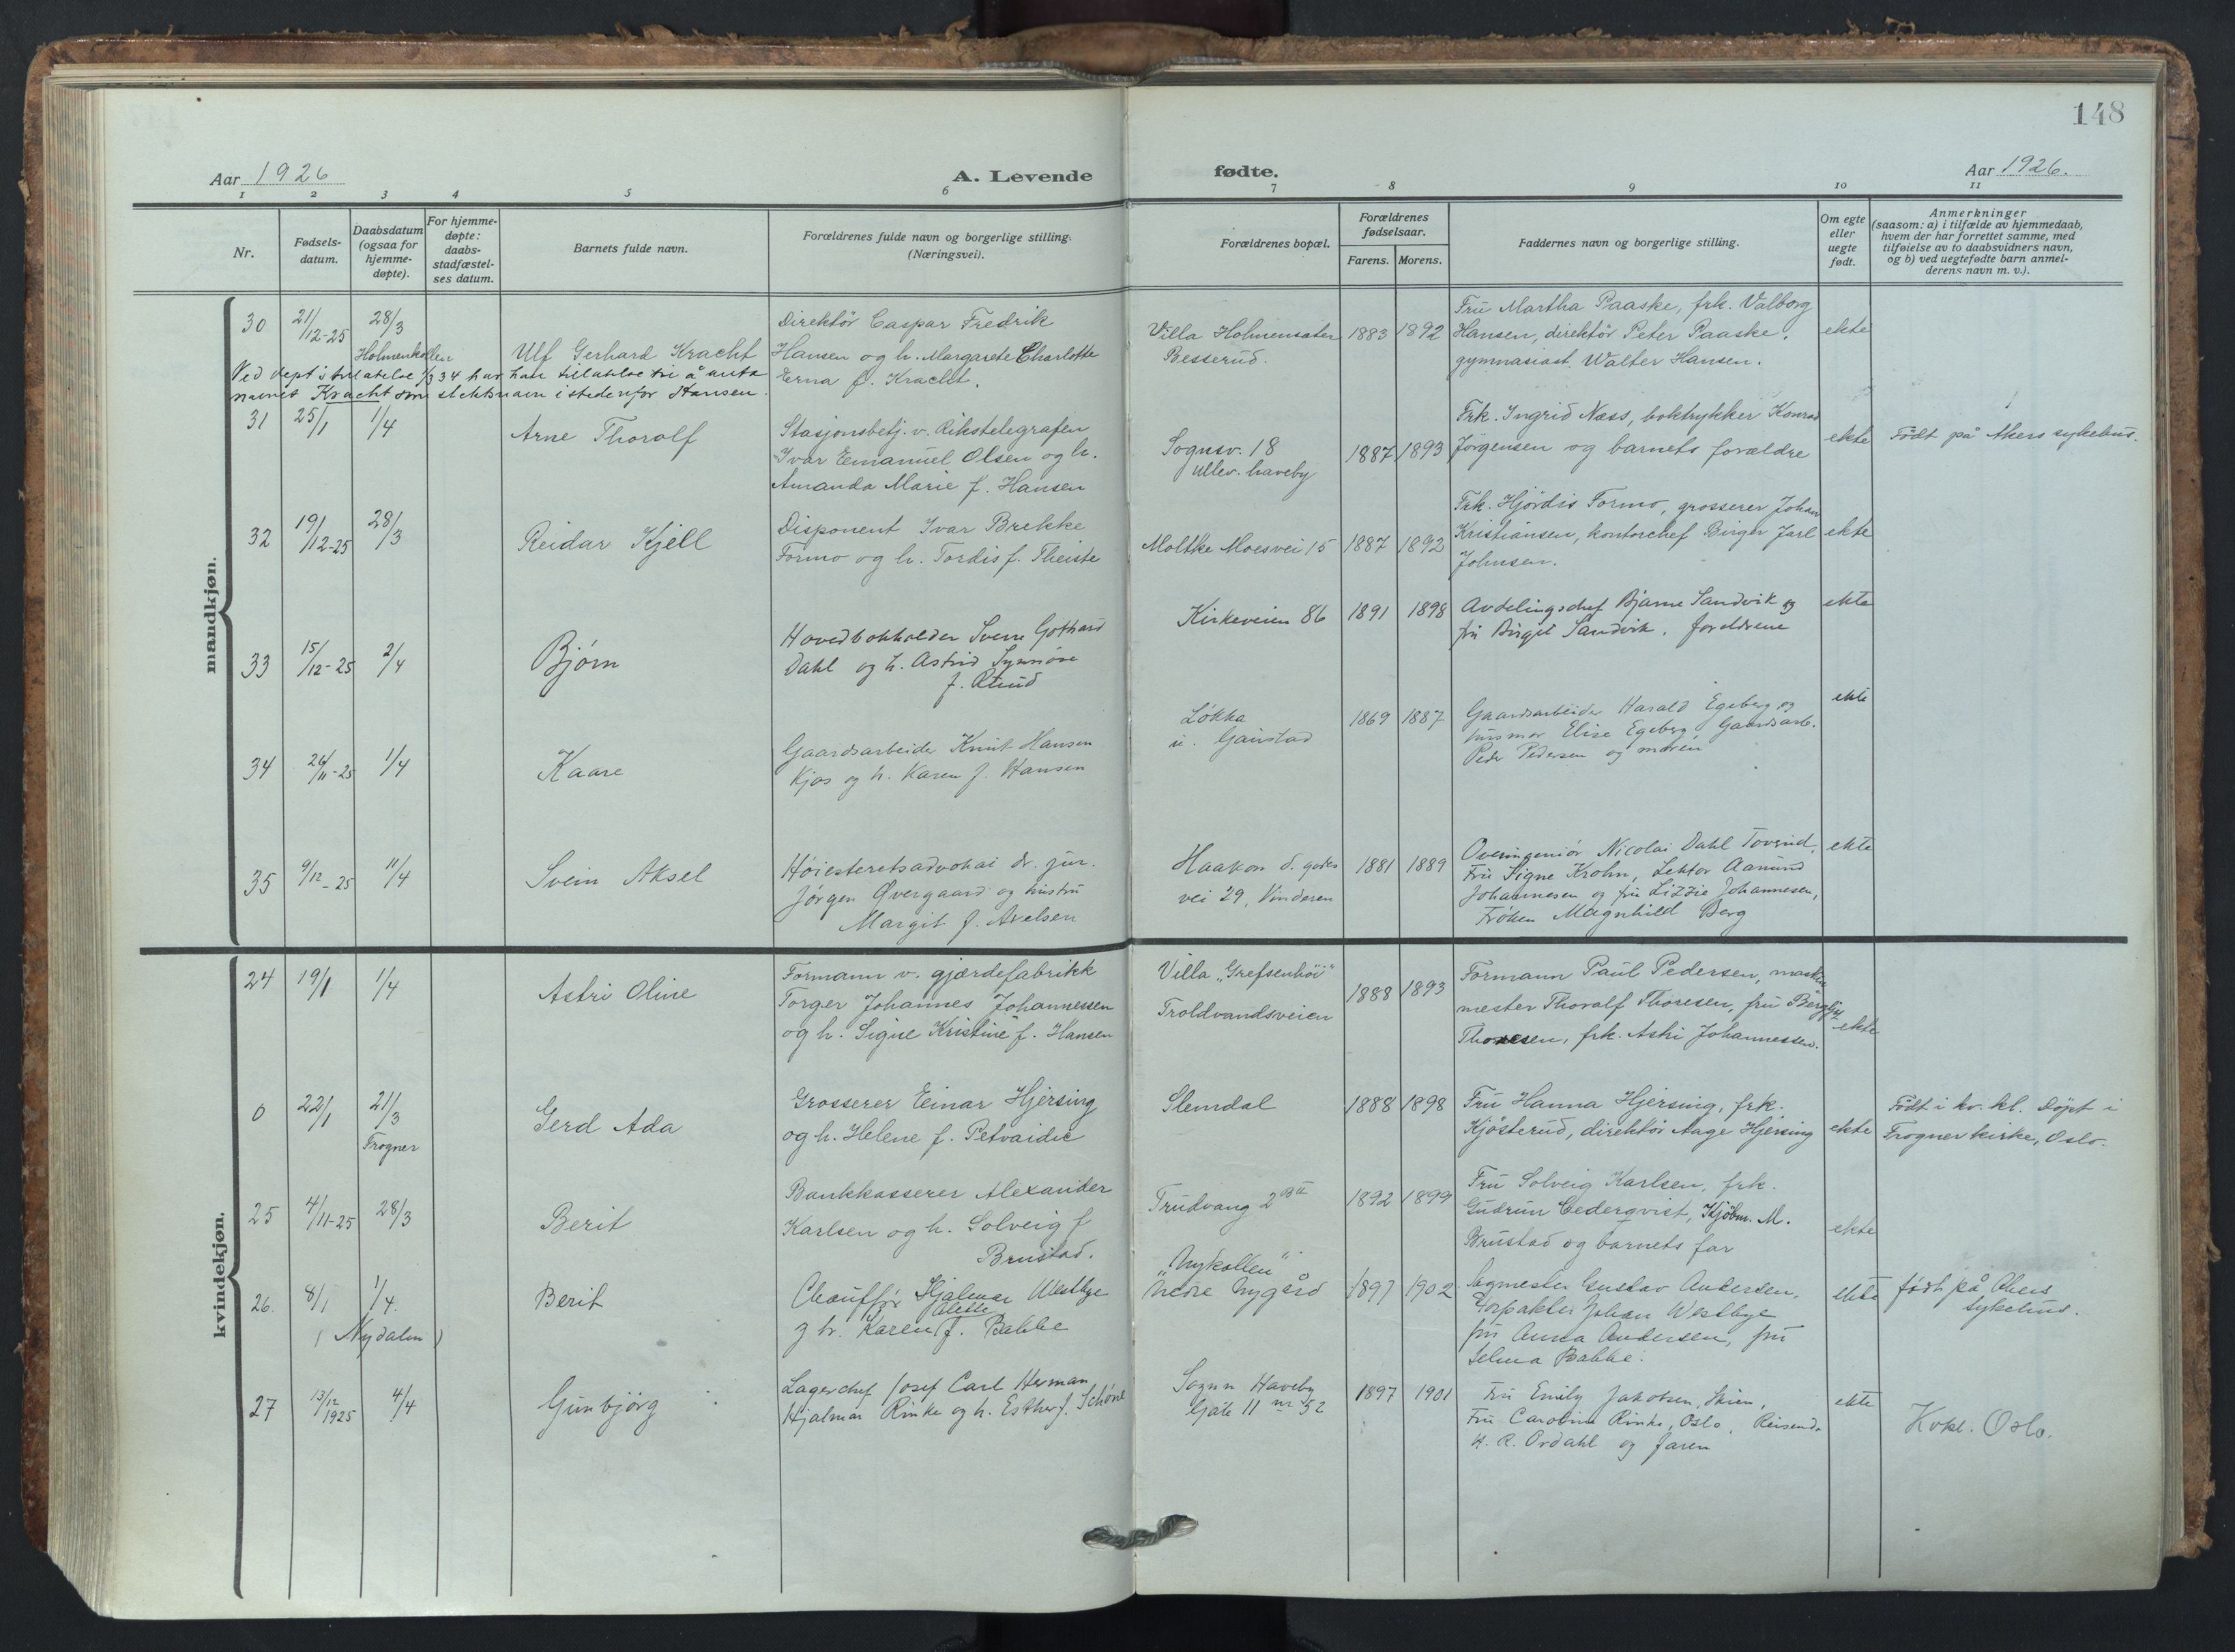 148
Aar 1926
A. Levende
fødte.
Aar 1926.
1 2 3 4 5 6 7 8 9 10 11
Nr.
Fødsels-
datum.
Daabsdatum
(ogsaa for
hjemme-
døpte).
For hjemme-
døpte:
daabs-
stadfæstel-
ses datum.
Barnets fulde navn.
Forældrenes fulde navn og borgerlige stilling.
(Næringsvei).
Forældrenes bopæl.
Forældrenes
fødselsaar.
Farens. Morens.
Faddernes navn og borgerlige stilling.
Om egte
eller
uegte
født.
Anmerkninger
(saasom: a) i tilfælde av hjemmedaab,
hvem der har forrettet samme, med
tilføielse av to daabsvidners navn,
og b) ved uegtefødte barn anmel-
derens navn m. v.).
mandkjøn.
30
21/12-25
28/3
Holmenkollen
Ulf Gerhard Kracht
Direktör Caspar Fredrik
Hansen og h. Margarete Charlotte
Erna f. Kracht.
Villa Holmensæter
Besserud.
1883 1892
Fru Martha Paaske, frk. Valborg
Hansen, direktör Peter Paaske,
gymnasiast Walter Hansen.
ekte
Ved dept's tillatelse 1/3 34 har han tillatelse til å anta
navnet Kracht som slektsnavn istedenfor Hansen.
31
25/1
1/4
Arne Thoralf
Stasjonsbetj. v. Rikstelegrafen
Ivar Emanuel Olsen og h.
Amanda Marie f. Hansen
Sognsv. 18
Ullev. haveby
1887 1893
Frk. Ingrid Næss, boktrykker Konrad
Jørgensen og barnets forældre
ekte
Født på Akers sykehus.
32
19/12-25
28/3
Reidar Kjell
Disponent Ivar Brekke
Formo og h. Tordis f. Theiste
Moltke Moesvei 15
1887 1892
Frk. Hjördis Formo, grosserer Johan
Kristiansen, kontorchef Birger Jarl
Johnsen.
ekte
33
15/12-25
2/4
Bjørn
Hovedbokholder Sverre Gothard
Dahl og h. Astrid Synnöve
f. Ruud
Kirkeveien 86
1891 1898
Avdelingschef Bjarne Sandvik og
fru Birgit Sandvik. foreldrene
ekte
34
1/4
Kaare
Gaardsarbeider Knut Hansen
Kjos og h. Karen f. Hansen
Løkka
u. Gaustad
1869 1887
Gaardsarbeider Harald Egeberg og
husmor Elise Egeberg Gaardsarb.
Peder Pedersen og moren
ekte
35
9/12-25
11/4
Svein Aksel
Høiesteretsadvokat dr. jur.
Jørgen Øvergaard og hustru
Margit f. Axelsen
Haakon d. godes
vei 29, Vinderen
1881 1889
Overingeniör Nicolai Dahl
Fru Signe Krohn, Lektor Aamund
Johannesen og fru Lizzie Johannesen,
Frøken Magnhild Berg
ekte
kvindekjøn.
24
19/1
1/4
Astri Oline
Formann v. gjærdefabrikk
Torger Johannes Johannessen
og h. Signe Kristine f. Hansen
Villa „Grefsenhöi"
Troldvandsveien
1888 1893
Formann Paul Pedersen, maskin
mester Thoralf Thoresen, fru Bergljot
Thoresen, frk. Astri Johannessen.
ekte
0
22/1
21/3
Frogner
Gerd Ada
Grosserer Einar Hjersing
og h. Helene f. Petvaidic
Slemdal
1888 1898
Fru Hanna Hjersing, frk.
Kjösterud, direktör Aage Hjersing
ekte
Født i kv. kl. Döpt i
Frogner kirke, Oslo.
25
4/11-25
28/3
Berit
Bankkasserer Alexander
Karlsen og h. Solveig f
Brustad.
Trudvang 2
1892 1899
Fru Solveig Karlsen, frk.
Gudrun Cederqvist, Kjöbm. M.
Brustad og barnets far
ekte
26.
8/1
1/4.
(Nydalen)
Berit
Chauffør Hjalmar Westbye
g hr. Karen f. Bakke
„Nykollen"
Nedre Nygård
1897 1902
Sagmester Gustav Andersen,
Forpakter Johan Westbye
fru Anna Andersen, fru
Selma Bakke.
ekte
født på Akers
sykehus.
27
13/12 1925
4/4
Gunbjörg
Lagerchef Josef Carl Herman
Hjalmar Rinke og h. Esther f. Schøne
Sogn Haveby
Gate 11 nr 52
1897 1901
Fru Emily Jakobsen, Skien,
Fru Caroline Rinke, Oslo, Reisende
H. R. Ordahl og faren
ekte
Kvkl. Oslo.